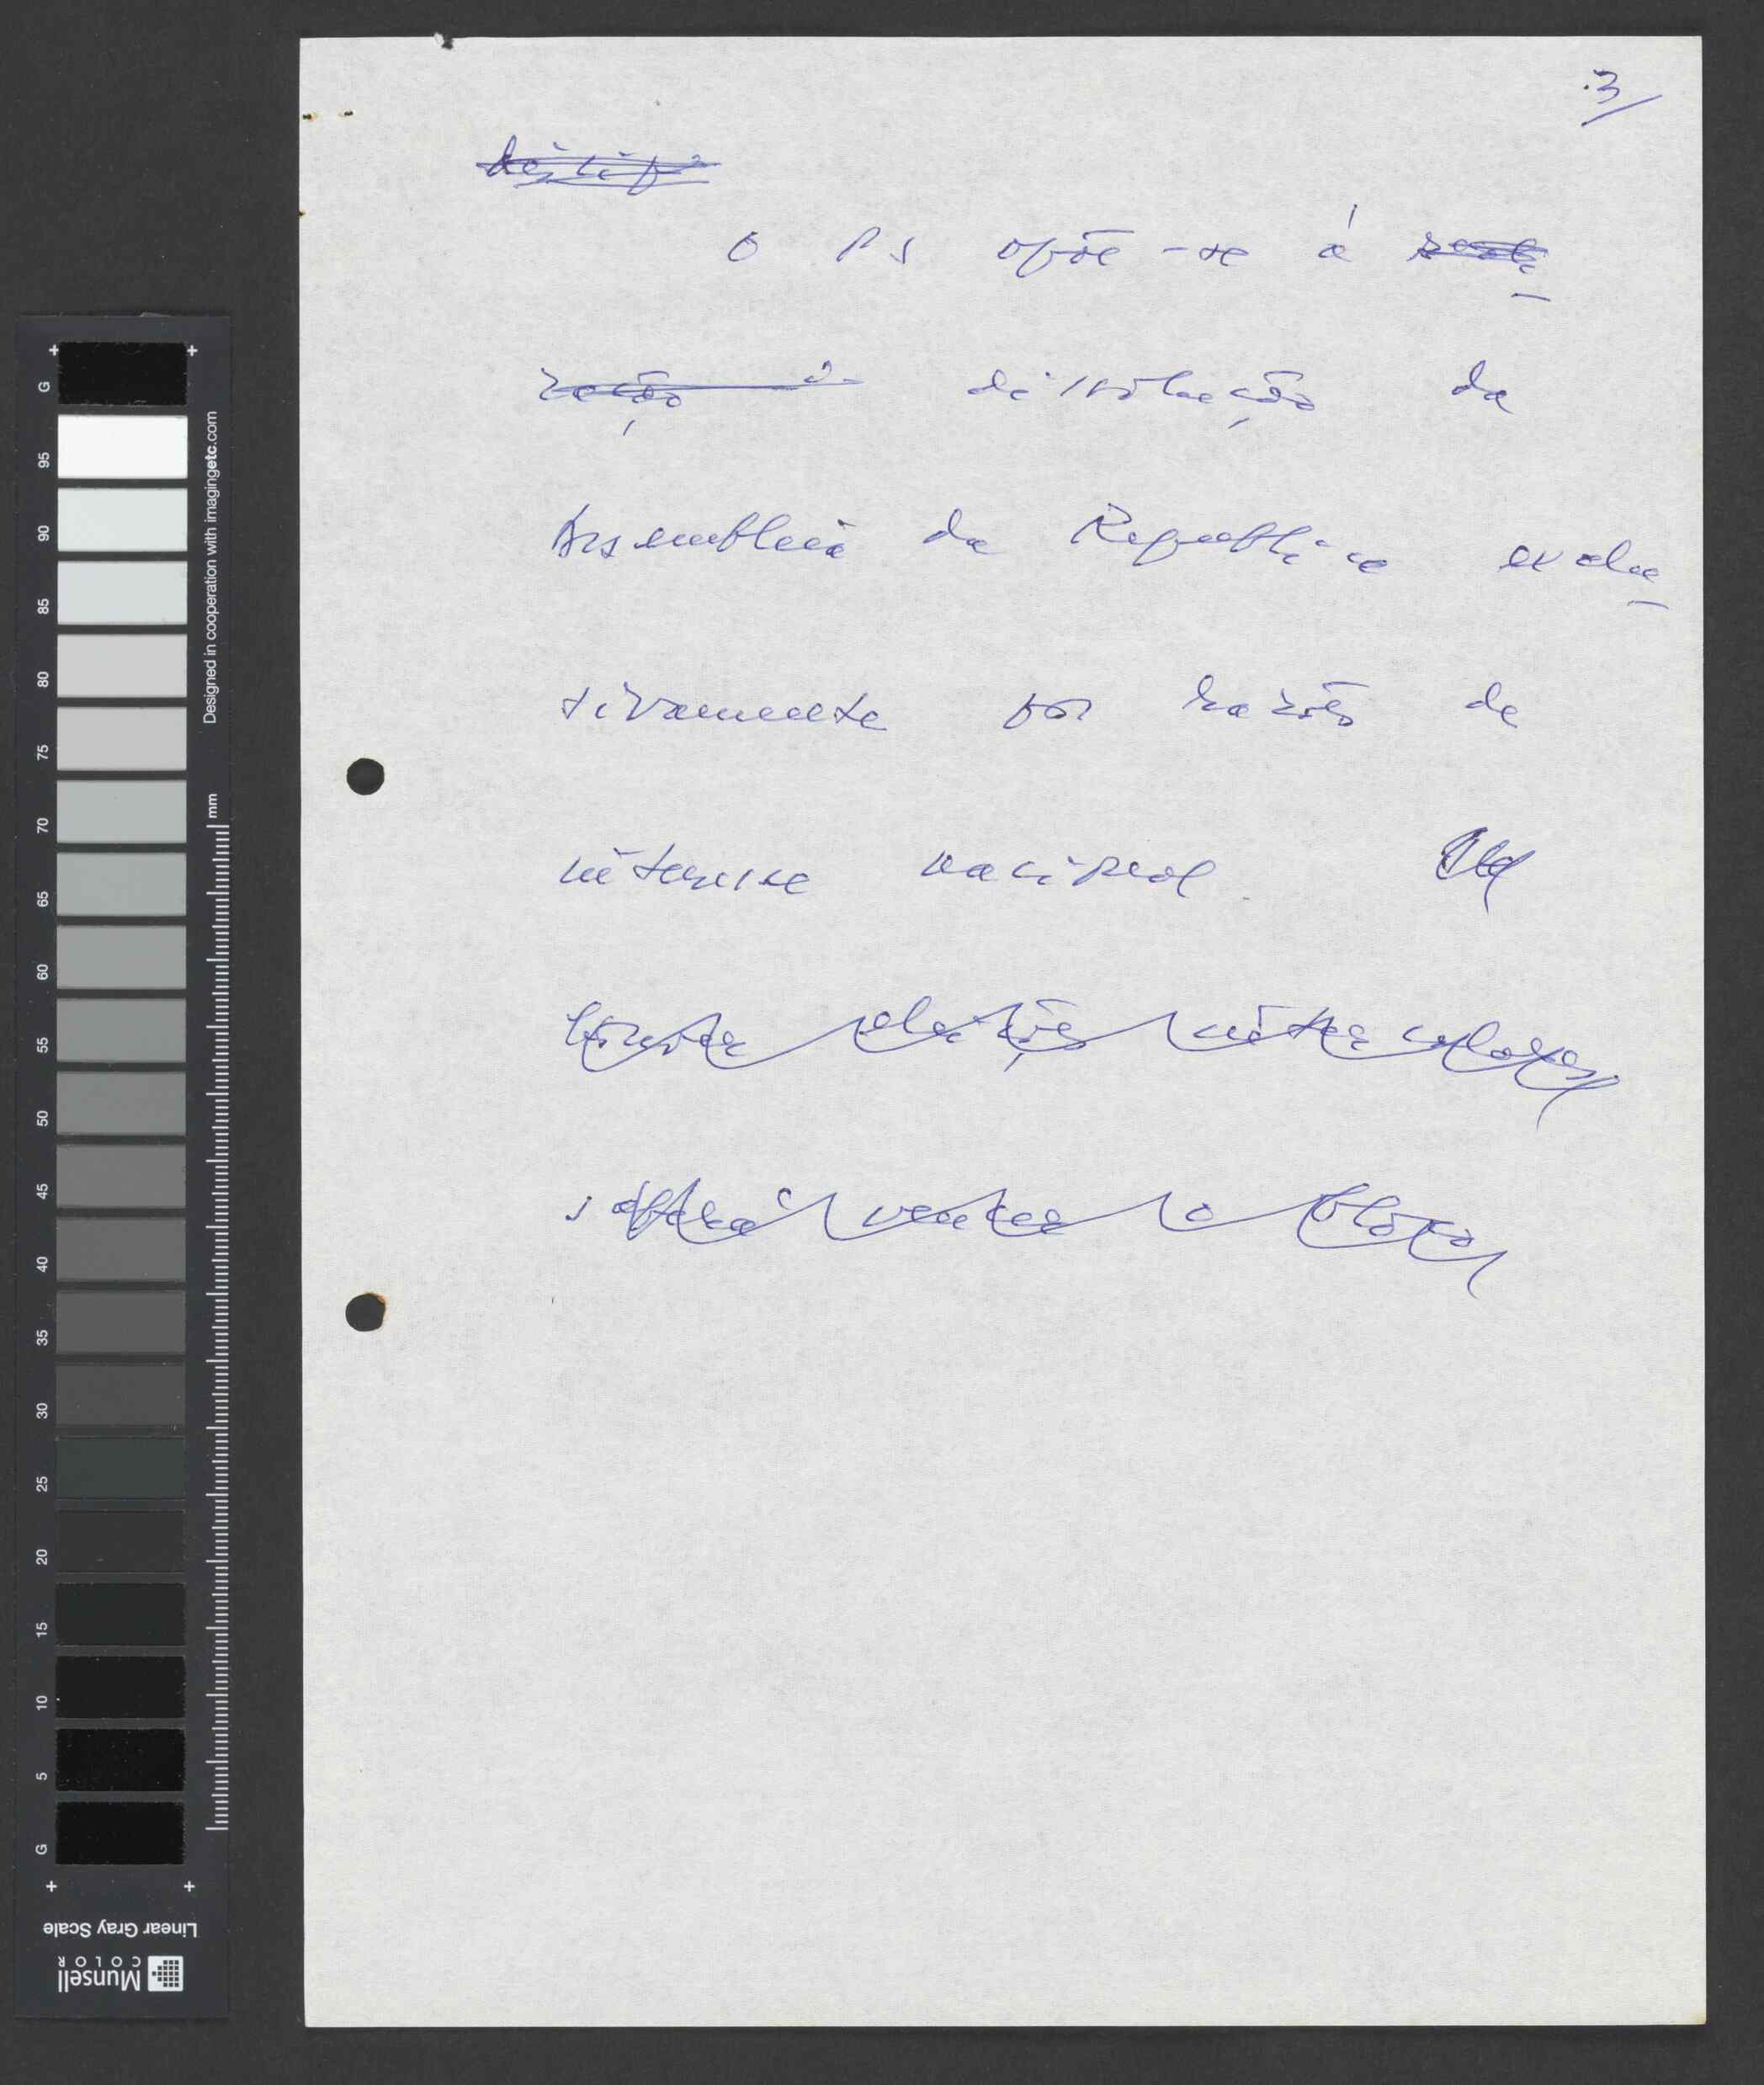 3/
O PS opõe-se à reali_
zação da dissolução da
Assembleia da Republica exclu_
sivamente por razões de
interesse nacional.
eleições
saberá vencer o bloco
G
95
90
85
80
75
70
65
60
55
50
45
40
35
30
25
20
15
10
5
G
Designed in cooperation with imagingetc.com
mm
Linear Gray Scale
Munsell
COLOR